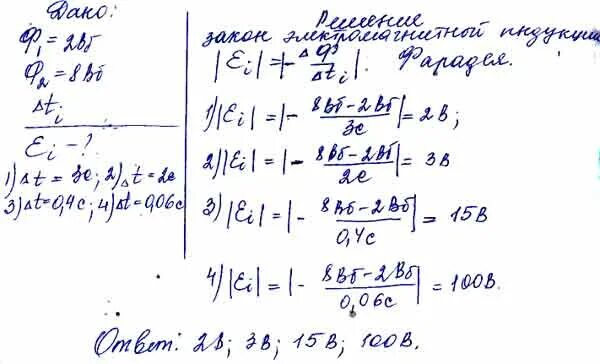 Дано:
Ф₁ = 2Вб
Ф₂ = 8Вб
Δtᵢ
Ɛᵢ - ?
1) Δt = 3с; 2) Δt = 2с
3) Δt = 0,4с; 4) Δt = 0,06с
Решение
закон электромагнитной индукции
|Ɛᵢ| = |- ΔФ/Δtᵢ|. Фарадея.
1) |Ɛᵢ| = |- (8Вб - 2Вб)/3с| = 2В;
2) |Ɛᵢ| = |- (8Вб - 2Вб)/2с| = 3В
3) |Ɛᵢ| = |- (8Вб - 2Вб)/0,4с| = 15В
4) |Ɛᵢ| = |- (8Вб - 2Вб)/0,06с| = 100В.
Ответ: 2В; 3В; 15В; 100В.